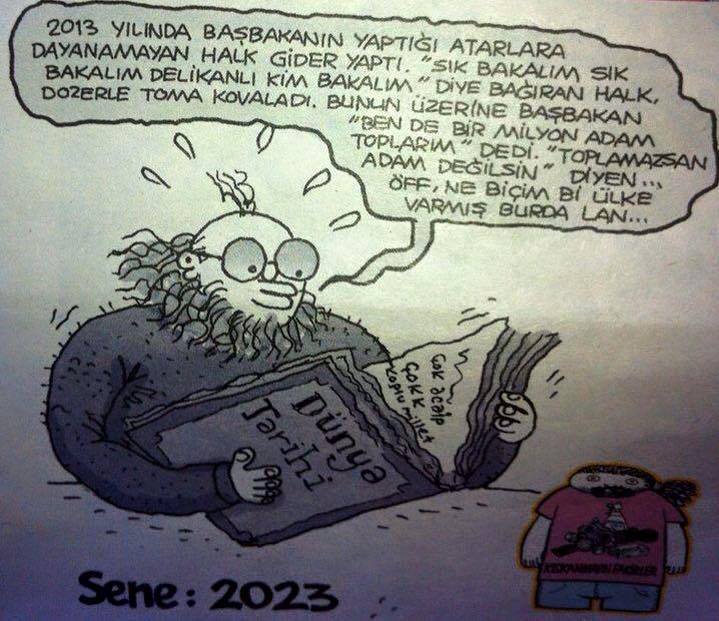 2013 YILINDA BAŞBAKANIN YAPTIĞI ATARLARA
DAYANAMAYAN HALK GİDER YAPTI. "SIK BAKALIM SIK
BAKALIM DELİKANLI KİM BAKALIM" DİYE BAĞIRAN HALK,
DOZERLE TOMA KOVALADI. BUNUN ÜZERİNE BAŞBAKAN
"BEN DE BİR MİLYON ADAM
TOPLARIM" DEDİ. "TOPLAMAZSAN
ADAM DEĞİLSİN" DİYEN...
ÖFF, NE BİÇİM Bİ ÜLKE
VARMIŞ BURDA LAN...
çok acaip
çokk
kopiu millet
Dünya
Tarihi
Sene: 2023